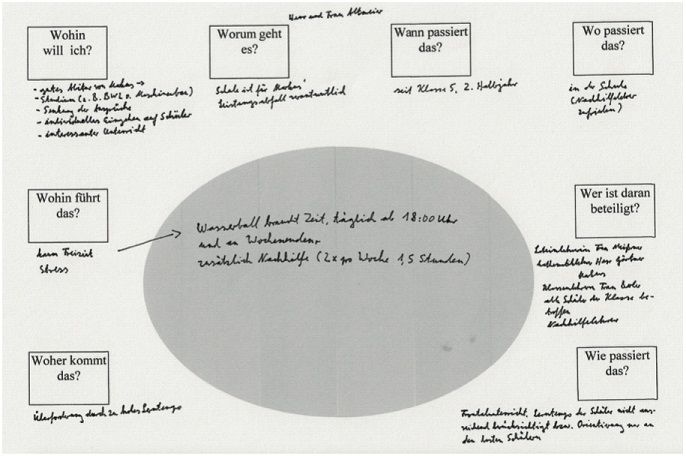 Herr und Frau Altmeier
Wohin
will ich?
- gutes Abitur von Markus →
- Studium (z.B. BWL o. Maschinenbau)
- Senkung der Ansprüche
- individuelles Eingehen auf Schüler
- interessanter Unterricht
Worum geht
es?
Schule ist für Markus'
Leistungsabfall verantwortlich
Wann passiert
das?
seit Klasse 5, 2. Halbjahr
Wo passiert
das?
in der Schule
(Nachhilfelehrer
zufrieden)
Wohin führt
das?
kaum Freizeit
Stress
Wasserball braucht Zeit, täglich ab 18:00 Uhr
und an Wochenenden,
zusätzlich Nachhilfe (2x pro Woche 1,5 Stunden)
Wer ist daran
beteiligt?
Lateinlehrerin Frau
Herr
Markus
Klassenlehrerin Frau
alle Schüler der Klasse be-
troffen
Nachhilfelehrer
Woher kommt
das?
Überforderung durch zu hohes Lerntempo
Wie passiert
das?
Frontalunterricht, Lerntempo der Schüler nicht aus-
reichend berücksichtigt bzw. Orientierung nur an
den besten Schülern